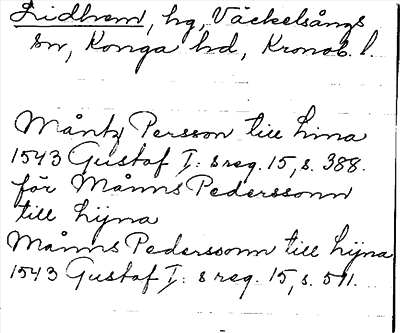 Lidhem, hg, Väckelsångs
sn, Konga hd, Kronob. l.
Måntz Persson till Lina
1543 Gustaf I: s reg. 15, s. 388.
för Månns Pederssonn
till Lijna
Månns Pederssonn till Lijna
1543 Gustaf I: s reg. 15, s. 511.